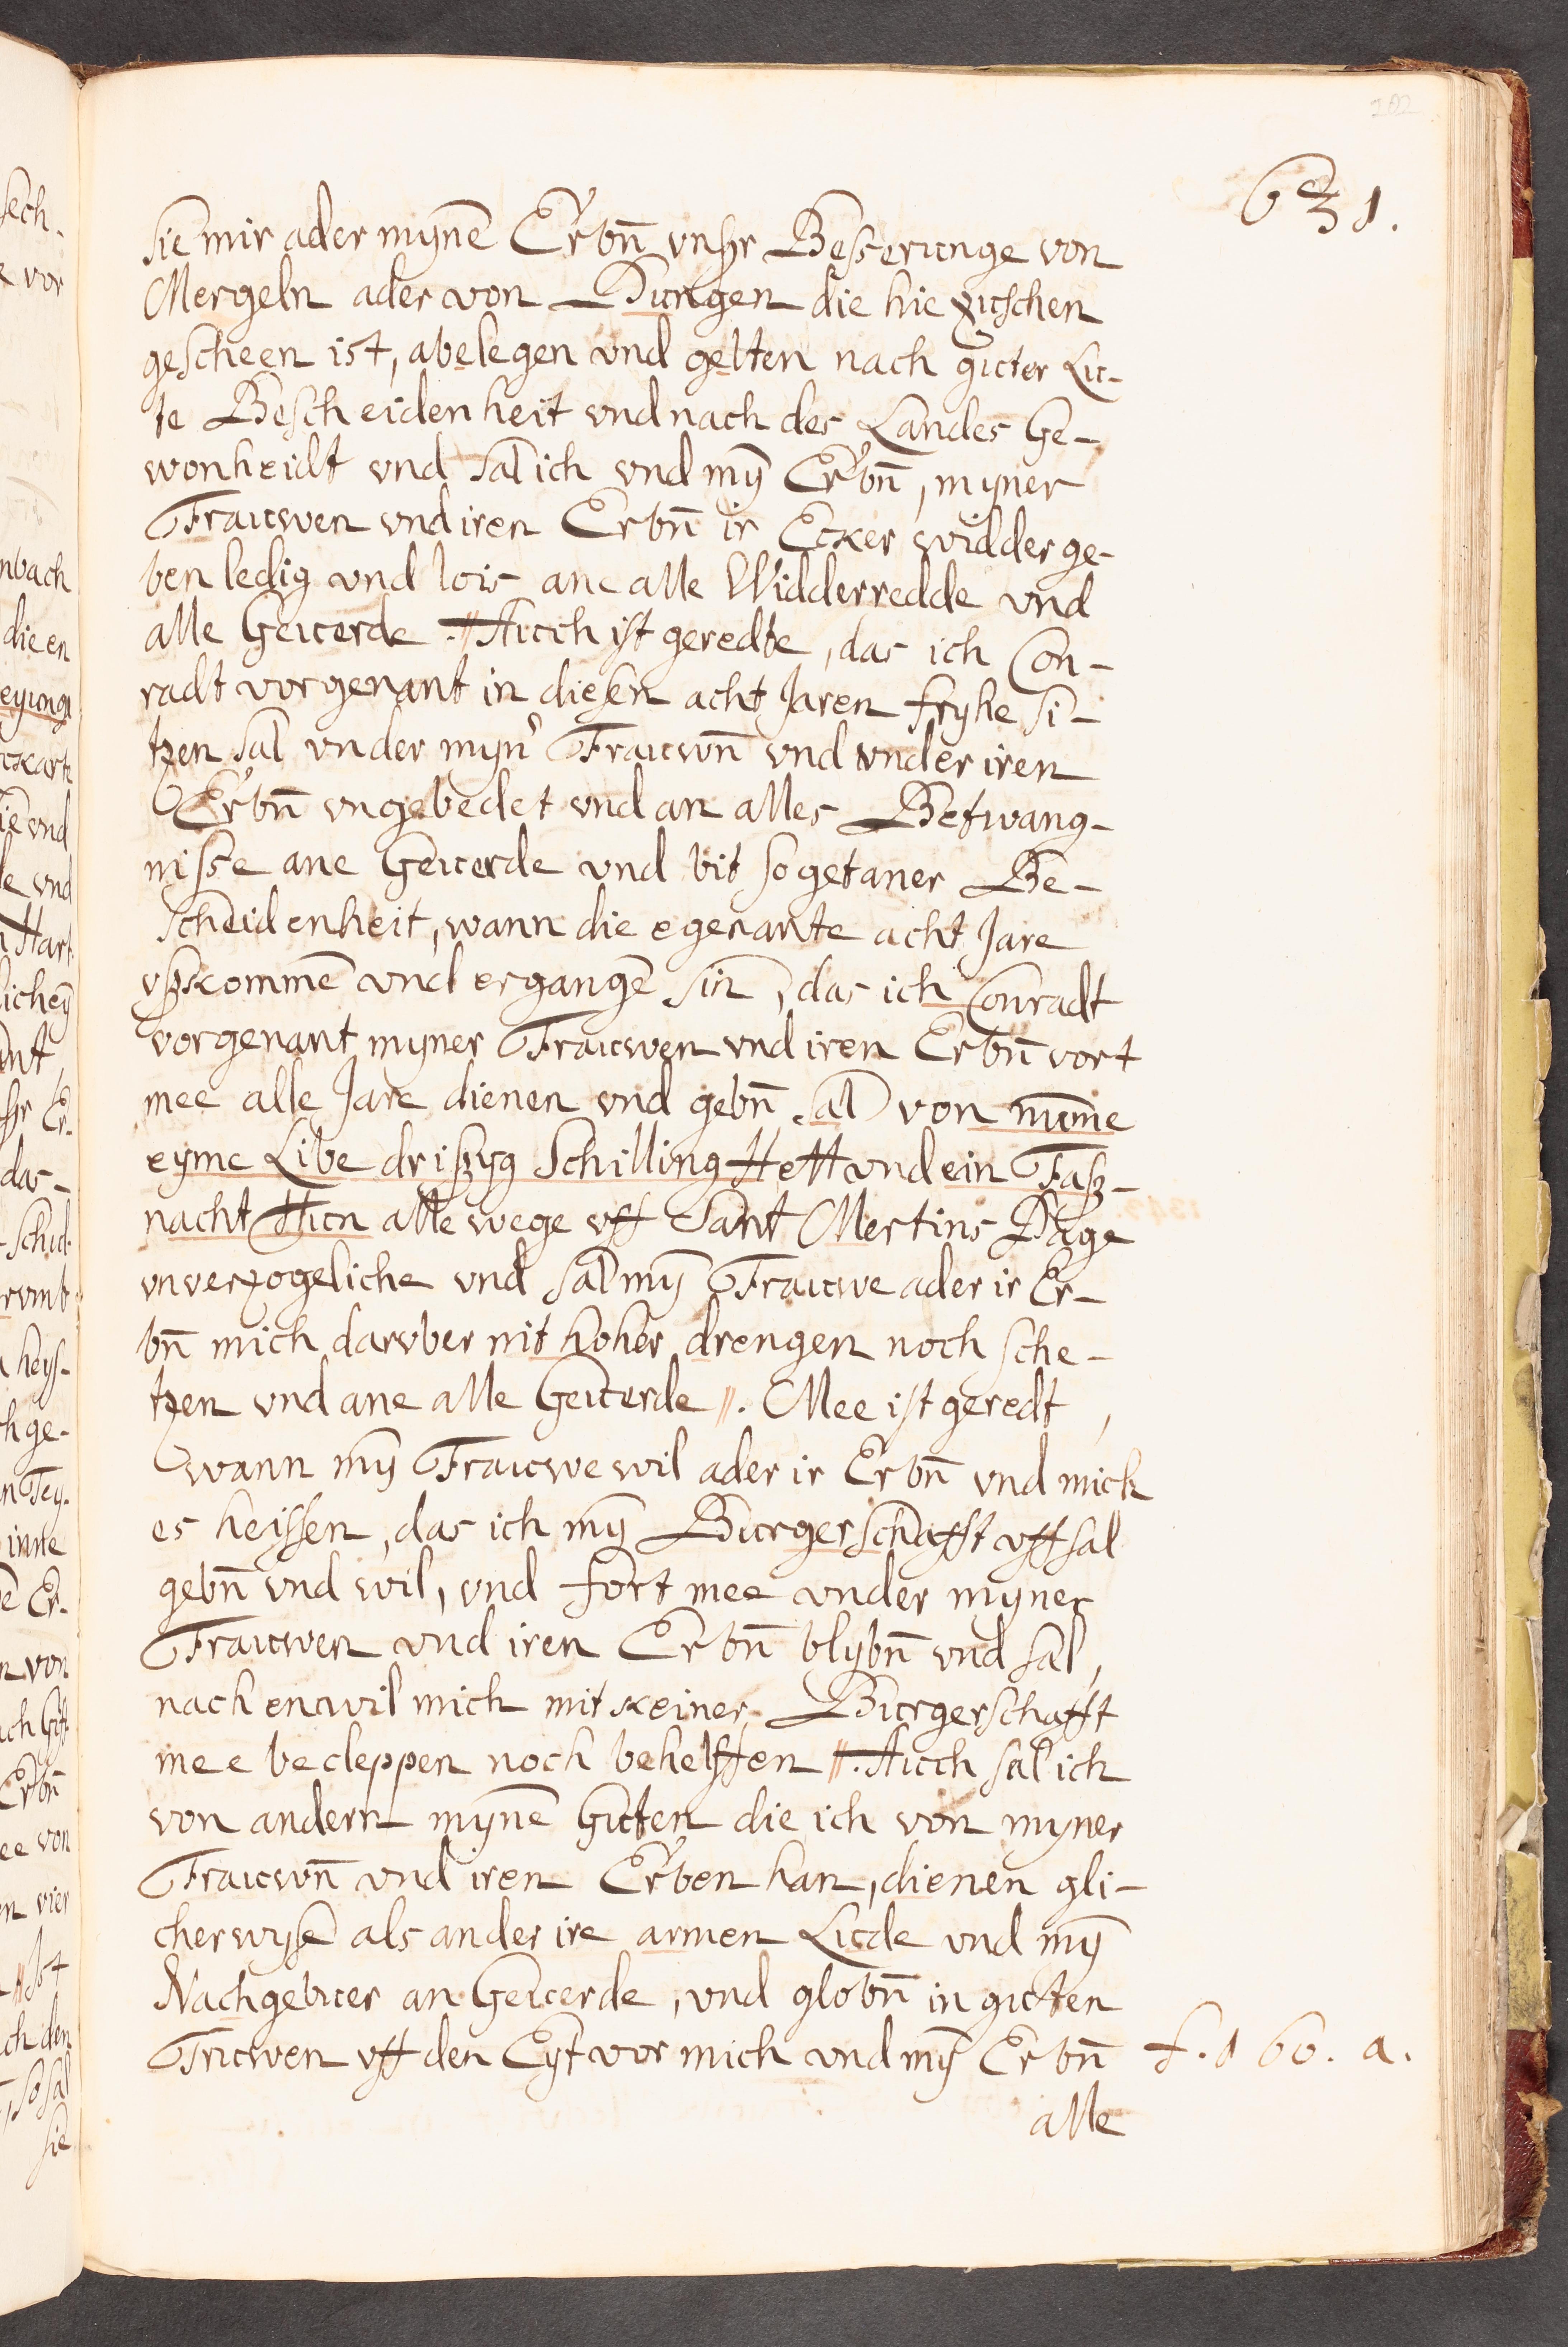 202
631.
sie mir ader mynē Erbn̄ vnsr Besserunge von
Mergeln ader von Dungen die hie zuschen
gescheen ist, abelegen vnd gelten nach guter Lu-
te Bescheidenheit vnd nach des Landes Ge-
wonheidt vnd sal ich vnd mȳ Erbn̄, myner
Frauwen vnd iren Erbn̄ ir Ecker widder ge-
ben ledig vnd lois ane alle Widderredde vnd
alle Geuerde .// Auch ist geredte, das ich Con-
radt vorgenant in diesen acht Jaren fryhe si-
tzen sal vnder myn' Frauwn̄ vnd vnder iren
Erbn̄ vngebedet vnd an alles Betwang-
nisse ane Geuerde vnd bit sogetaner Be-
scheidenheit, wann die egenante acht Jare
vßkommē vnd ergangē sin, das ich Conradt
vorgenant myner Frauwen vnd iren Erbn̄ vort
mee alle Jare dienen vnd gebn̄ sal von mīme
eyme Libe drißyg Schilling Hell vnd ein Faß-
nacht Hun alle wege vff Sant Mertins Dage
vnverzogeliche vnd sal mȳ Frauwe ader ir Er-
bn̄ mich darvber nit hoher drengen noch sche-
tzen vnd ane alle Geuerde //. Mee ist geredt,
wann mȳ Frauwe wil ader ir Erbn̄ vnd mich
es heissen, das ich mȳ Burgerschafft vff sal
gebn̄ vnd wil, vnd fort mee vnder myner
Frauwen vnd iren Erbn̄ blybn̄ vnd sal,
nach enwil mich mit keiner Burgerschafft
mee becleppen noch behelffen //. Auch sal ich
von andern mynē Guten die ich von myner
Frauwn̄ vnd iren Erben han, dienen gli-
cherwyse als ander ire armen Lude vnd mȳ
Nachgebuer an Geuerde, vnd globn̄ in guten
Truwen vff den Eyt vor mich vnd mȳ Erbn̄ f. 166. a.
alle